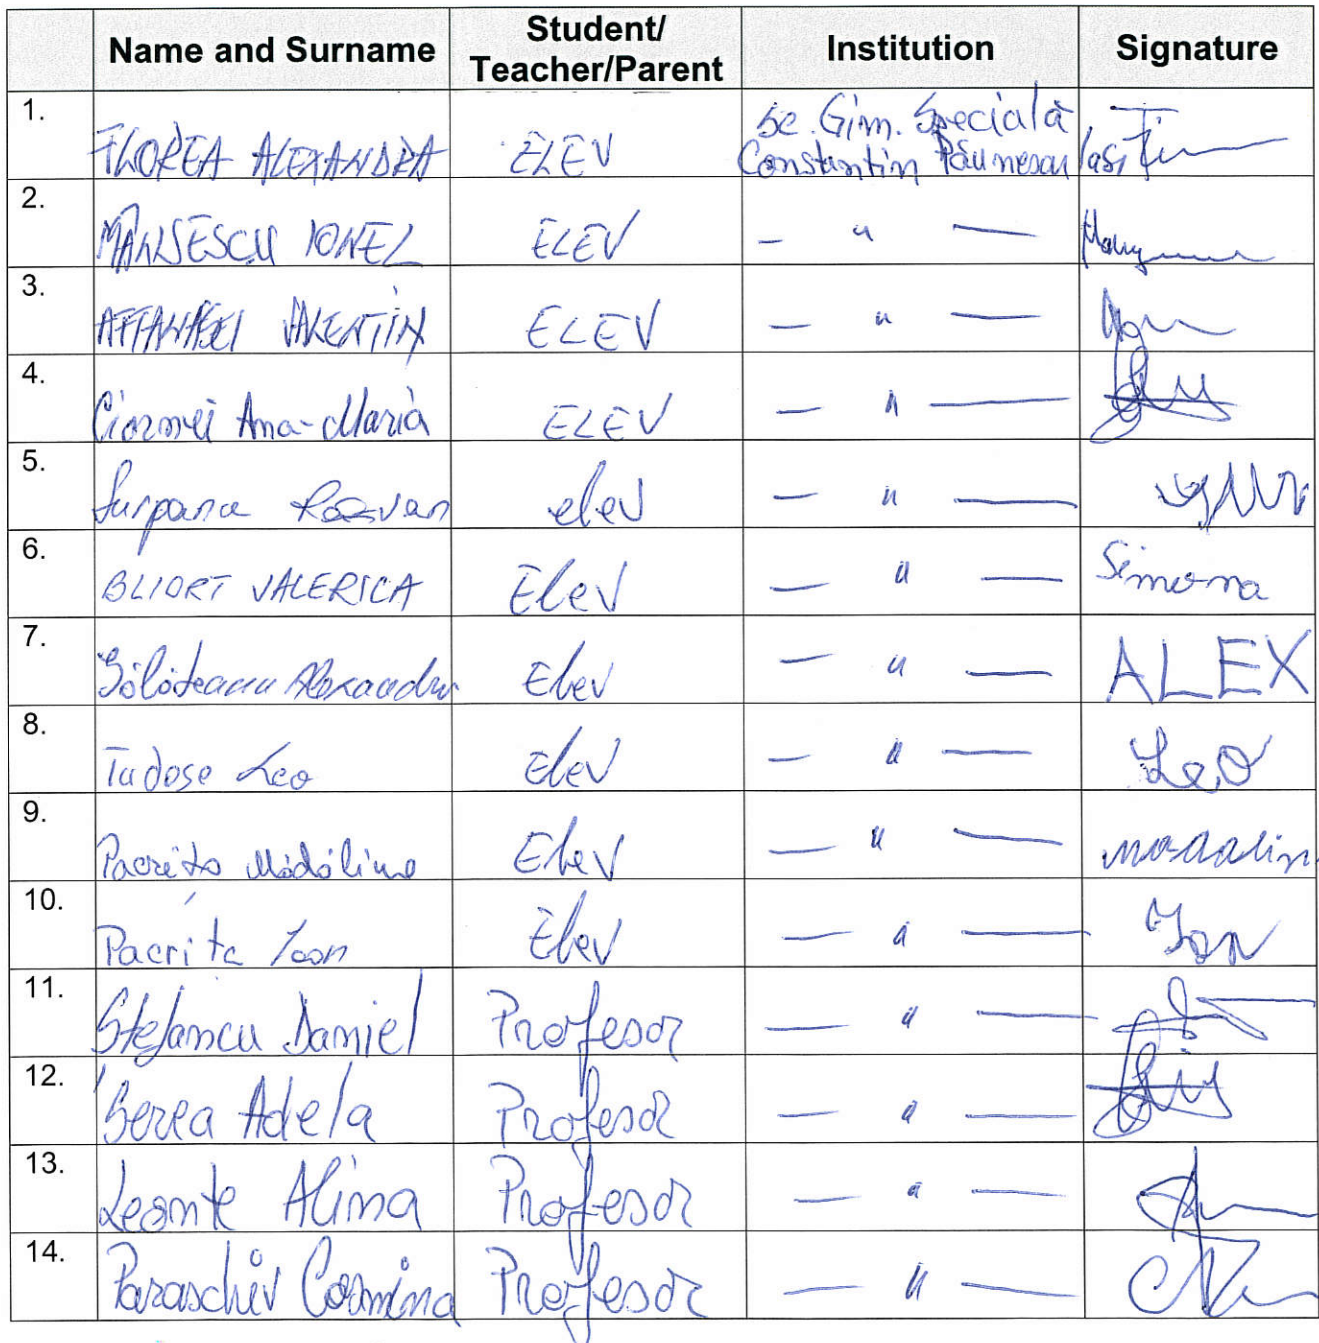 Name and Surname Student/Teacher/Parent Institution Signature
1. FLOREA ALEXANDRA ELEV Sc. Gim. Specială Constantin Păunescu Iași
2. IONEL ELEV — " —
3. VALENTIN ELEV — " —
4. Ciornei Ana-Maria ELEV — " —
5. Razvan elev — " —
6. BLIORT VALERICA Elev — " — Simona
7. Alexandru Elev — " — ALEX
8. Tudose Leo Elev — " — Leo
9. Mădălina Elev — " —
10. Pacrita Ioan Elev — " — Ion
11. Stefancu Daniel Profesor — " —
12. Berea Adela Profesor — " —
13. Leonte Alina Profesor — " —
14. Paraschiv Cosmina Profesor — " —